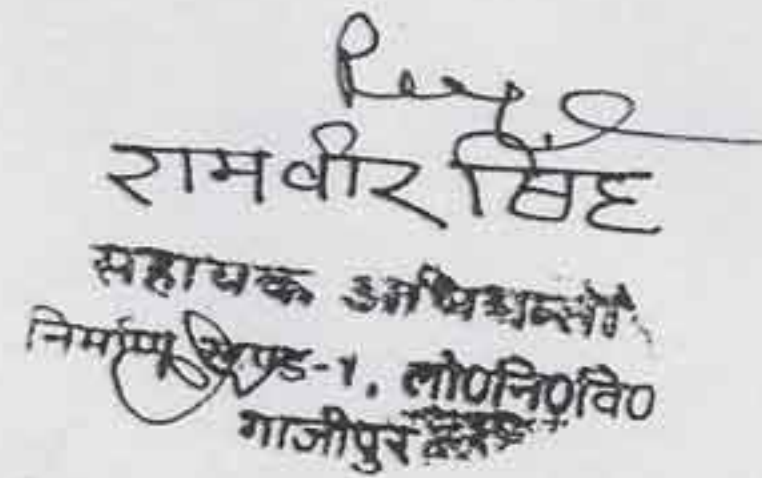 रामवीर सिंह
सहायक अभियन्ता
निर्माण खण्ड-1, लो0नि0वि0
गाजीपुर